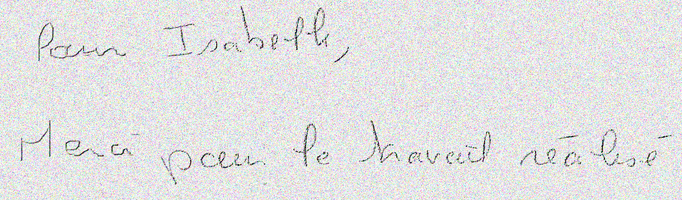 Pour Isabelle,
Merci pour le travail réalisé